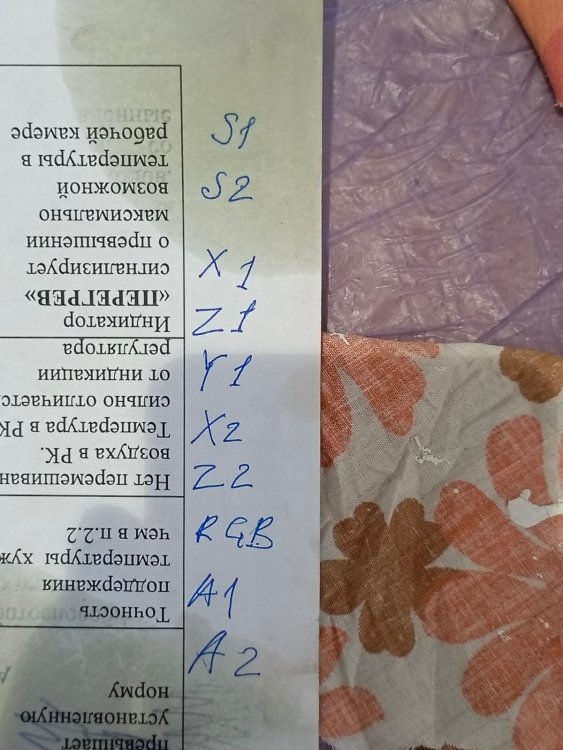 S1
S2
X1
Z1
Y1
X2
Z2
RGB
A1
A2
превышает
установленную
норму
Точность
поддержания
температуры хуж
чем в п.2.2
Нет перемешиван
воздуха в РК.
Температура в РК
сильно отличаетс
от индикации
регулятора
Индикатор
«ПЕРЕГРЕВ»
сигнализирует
о превышении
максимально
возможной
температуры в
рабочей камере